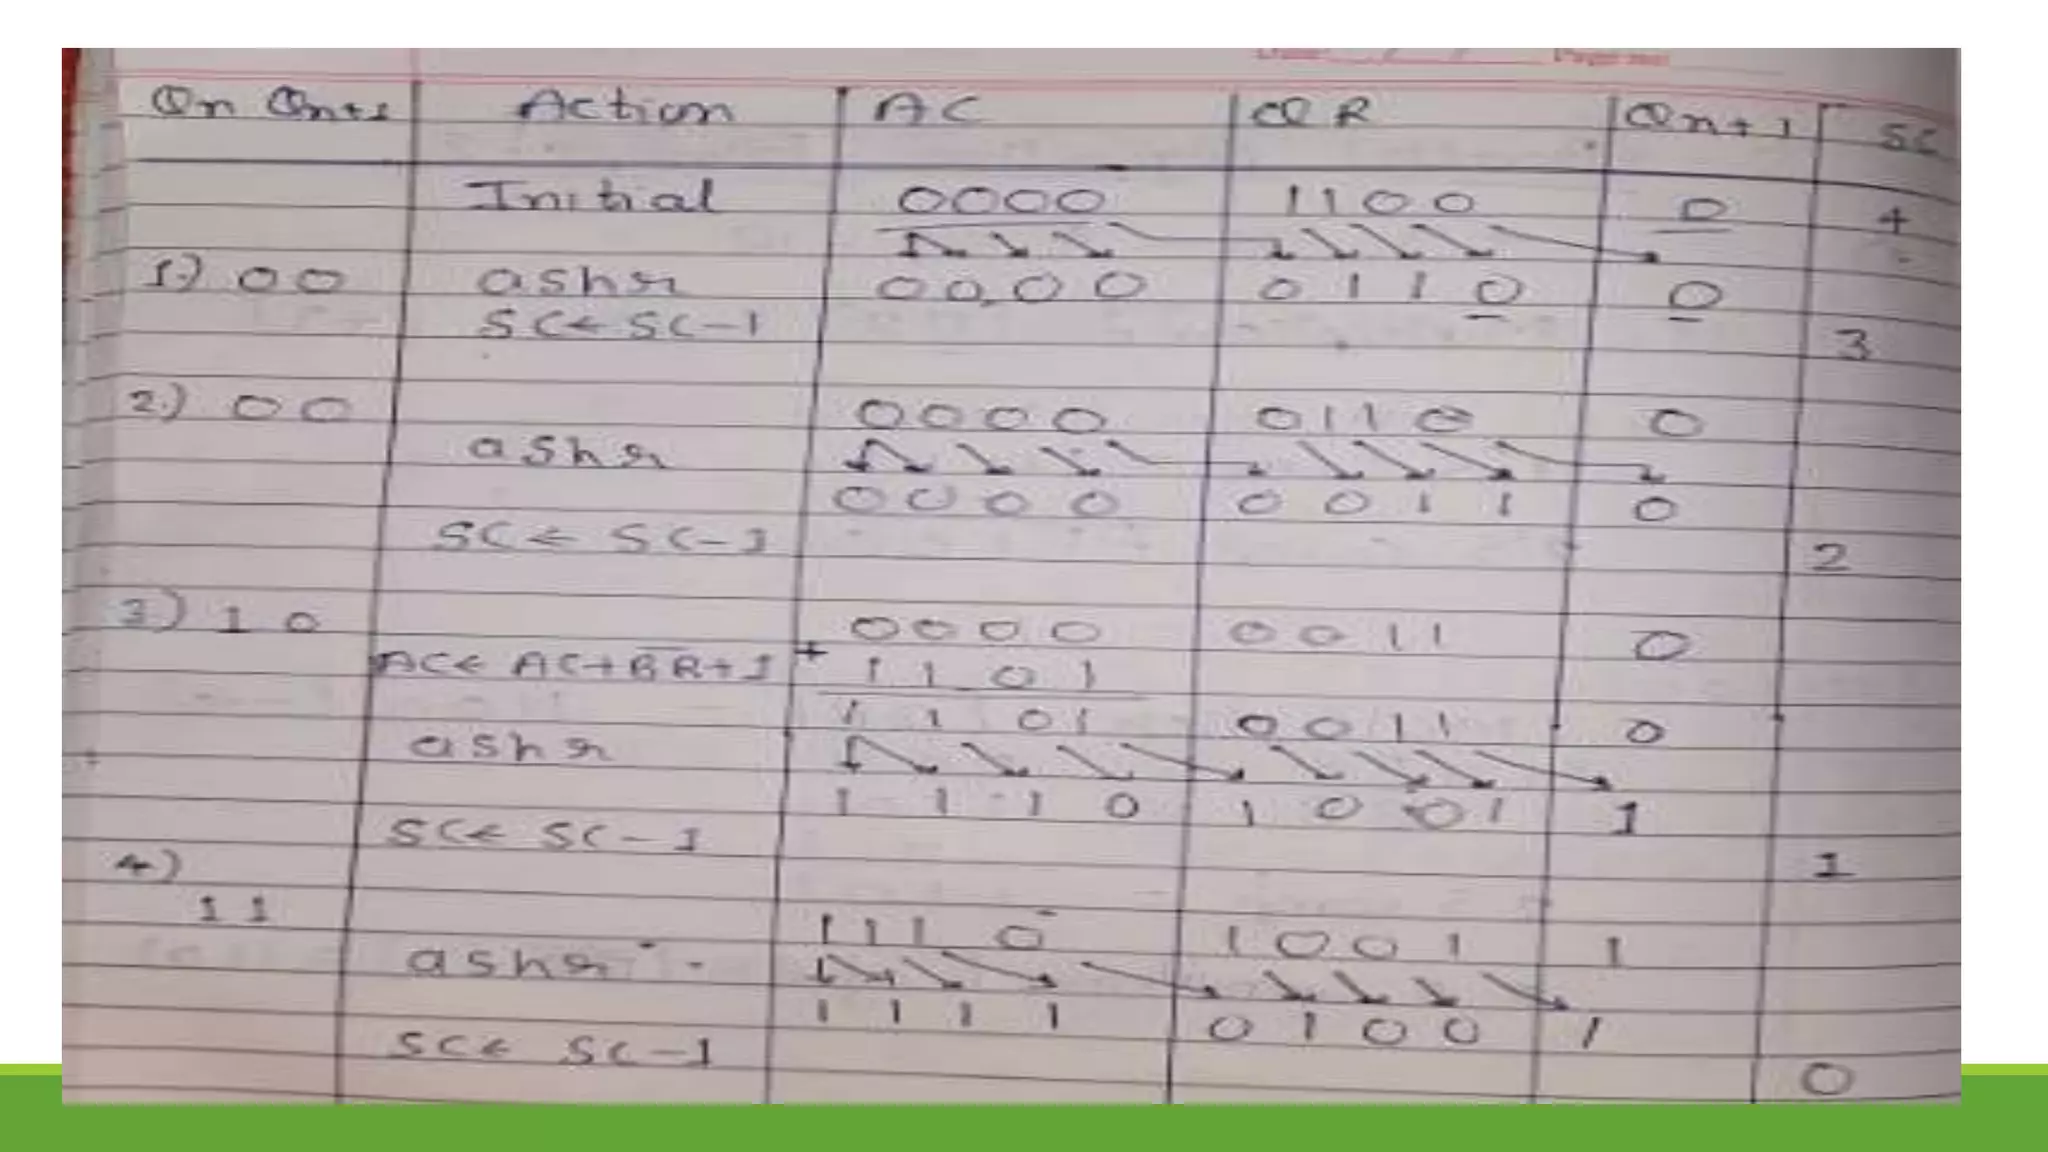 Date / / Page no.
Qn Qn+1 Action AC QR Qn+1 SC
Initial 0000 1100 0 4
1.) 00 ashr 0000 0110 0
SC ← SC-1 3
2.) 00 0000 0110 0
ashr
0000 0011 0
SC ← SC-1 2
3) 10 0000 0011 0
AC ← AC+B̅R̅+1 + 1101
1101 0011 0
ashr
1110 1001 1
SC ← SC-1 1
4)
11 1110 1001 1
ashr
1111 0100 1
SC ← SC-1 0